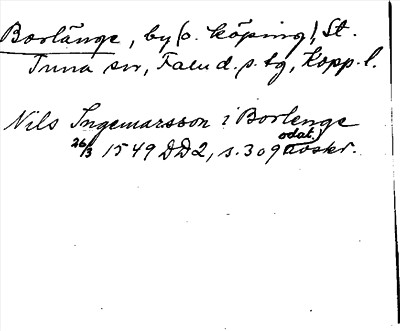 Borlänge, by (o. köping), St.
Tuna sn, Falu d.s. tg, Kopp. l.
Nils Ingemarsson i Borlenge
26/3 1549 DD2, s. 309 (odat.) avskr.